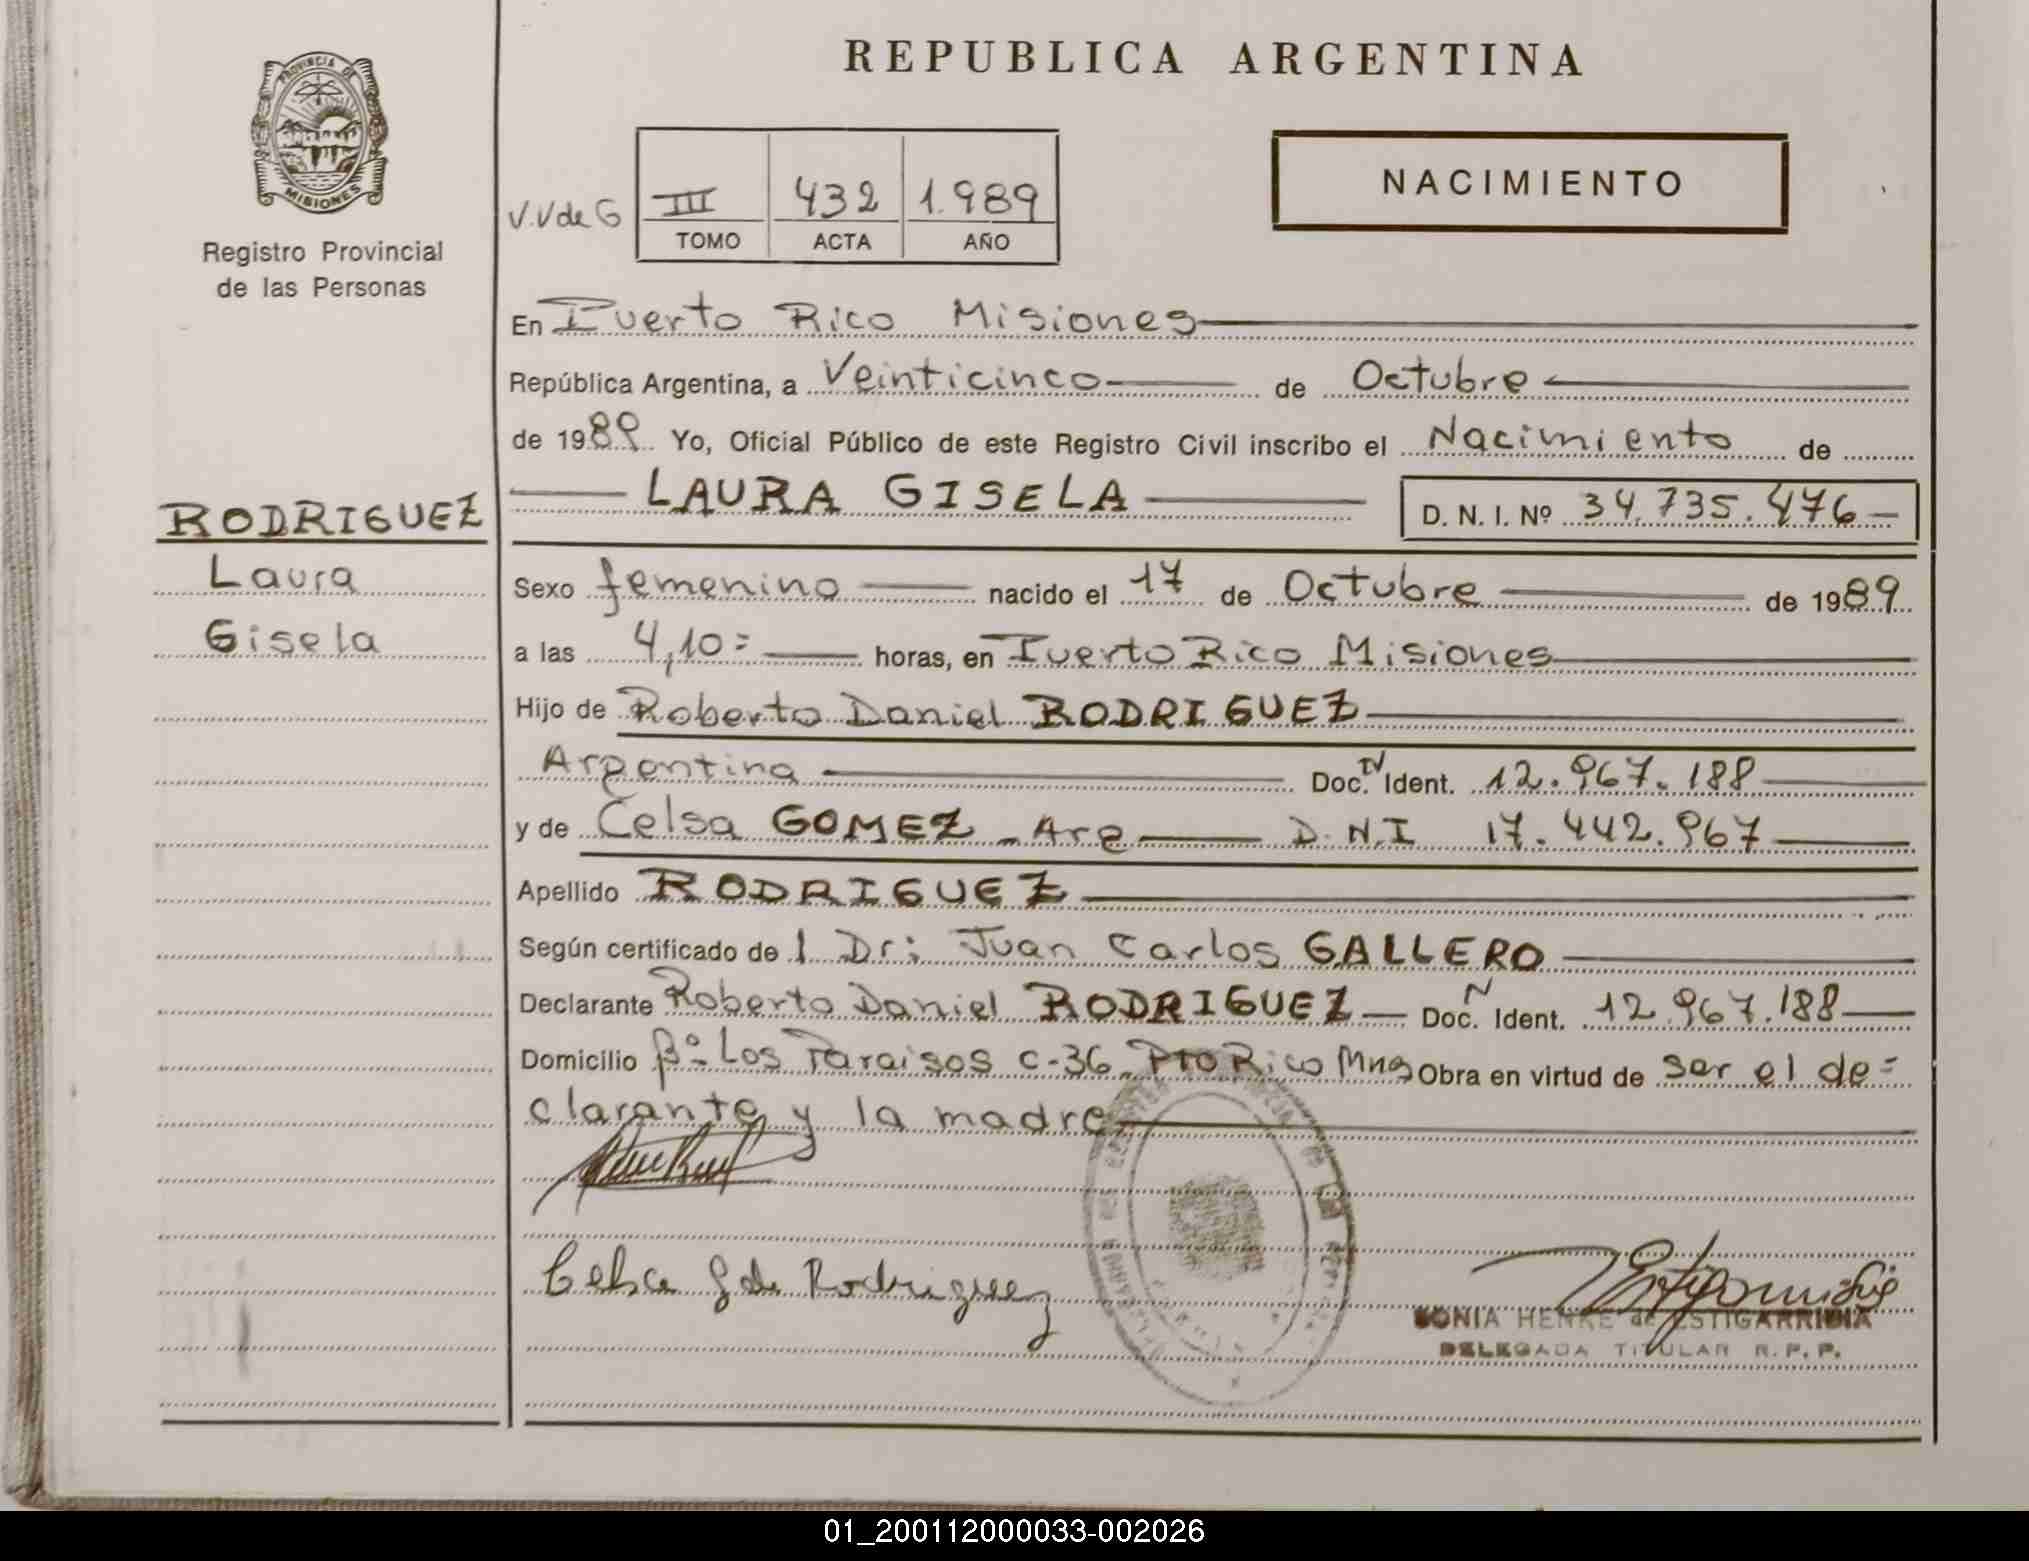 REPUBLICA ARGENTINA
PROVINCIA DE
MISIONES
Registro Provincial
de las Personas
V.V de G
III 432 1.989
TOMO ACTA AÑO
NACIMIENTO
En Puerto Rico Misiones
República Argentina, a Veinticinco de Octubre
de 1989 Yo, Oficial Público de este Registro Civil inscribo el Nacimiento de
RODRIGUEZ
Laura
Gisela
LAURA GISELA D. N. I. Nº 34.735.476
Sexo femenino nacido el 17 de Octubre de 1989
a las 4,10= horas, en Puerto Rico Misiones
Hijo de Roberto Daniel RODRIGUEZ
Argentina Doc. Ident. 12.967.188
y de Celsa GOMEZ - Arg D.N.I 17.442.967
Apellido RODRIGUEZ
Según certificado de l Dr: Juan Carlos GALLERO
Declarante Roberto Daniel RODRIGUEZ Doc. N Ident. 12.967.188
Domicilio Bº Los Paraisos C-36 Pto Rico Mnes Obra en virtud de ser el de=
clarante y la madre
Celsa G de Rodriguez
SONIA HENKE de ESTIGARRIBIA
DELEGADA TITULAR R.P.P.
01_200112000033-002026